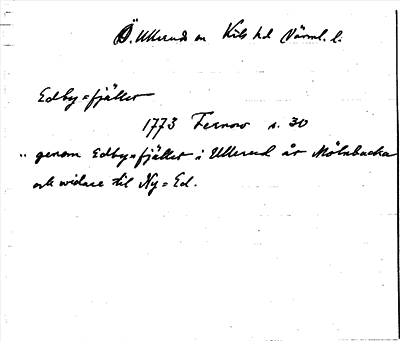 Ö. Ullerud sn Kils hd Värml. l.
Edby=fjället
1773 Fernow s. 30
" genom Edby=fjället i Ullerud är Mölnbacka
och widare til Ny=Ed.